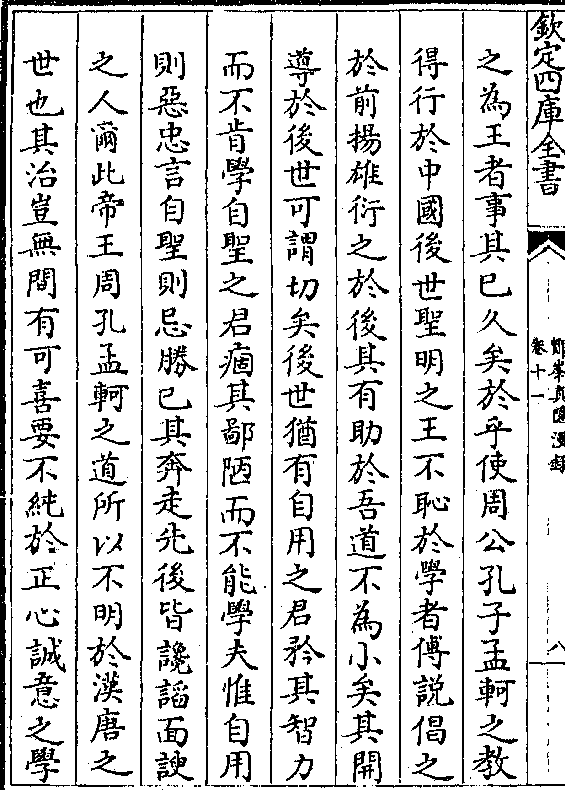 欽定四庫全書
卷十一
八
之為王者事其已久矣於乎使周公孔子孟軻之教
得行於中國後世聖明之王不恥於學者傅說倡之
於前揚雄衍之於後其有助於吾道不為小矣其開
導於後世可謂切矣後世猶有自用之君矜其智力
而不肯學自聖之君痼其鄙陋而不能學夫惟自用
則惡忠言自聖則忌勝己其奔走先後皆讒諂面諛
之人爾此帝王周孔孟軻之道所以不明於漢唐之
世也其治豈無間有可喜要不純於正心誠意之學